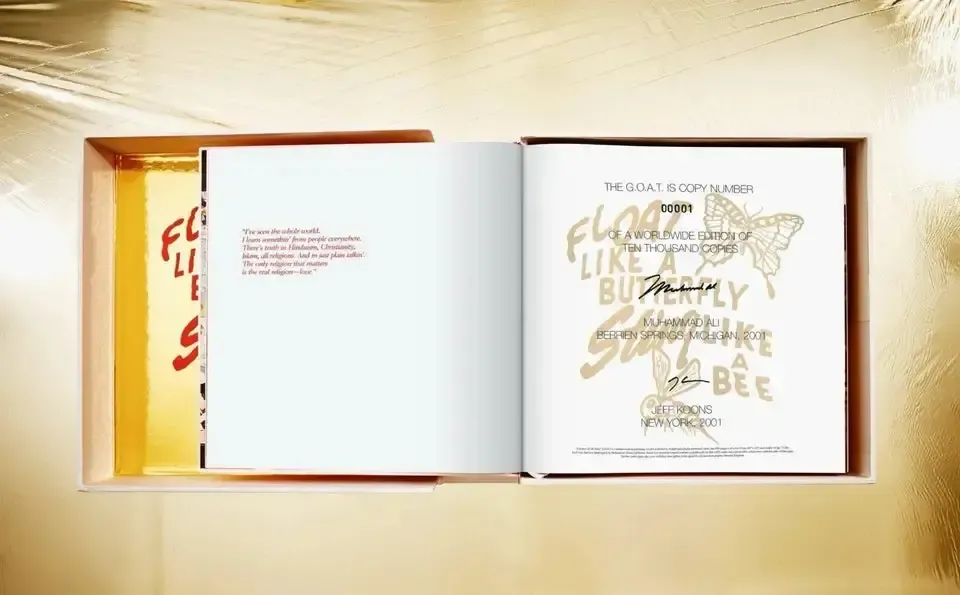 FL
LI
B
S
"I've seen the whole world.
I learn somethin' from people everywhere.
There's truth in Hinduism, Christianity,
Islam, all religions. And in just plain talkin'.
The only religion that matters
is the real religion—love."
THE G.O.A.T. IS COPY NUMBER
00001
OF A WORLDWIDE EDITION OF
TEN THOUSAND COPIES
FLOAT
LIKE A
BUTTERFLY
STING LIKE
A
BEE
Muhammad Ali
MUHAMMAD ALI
BERRIEN SPRINGS, MICHIGAN, 2001
JEFF KOONS
NEW YORK, 2001